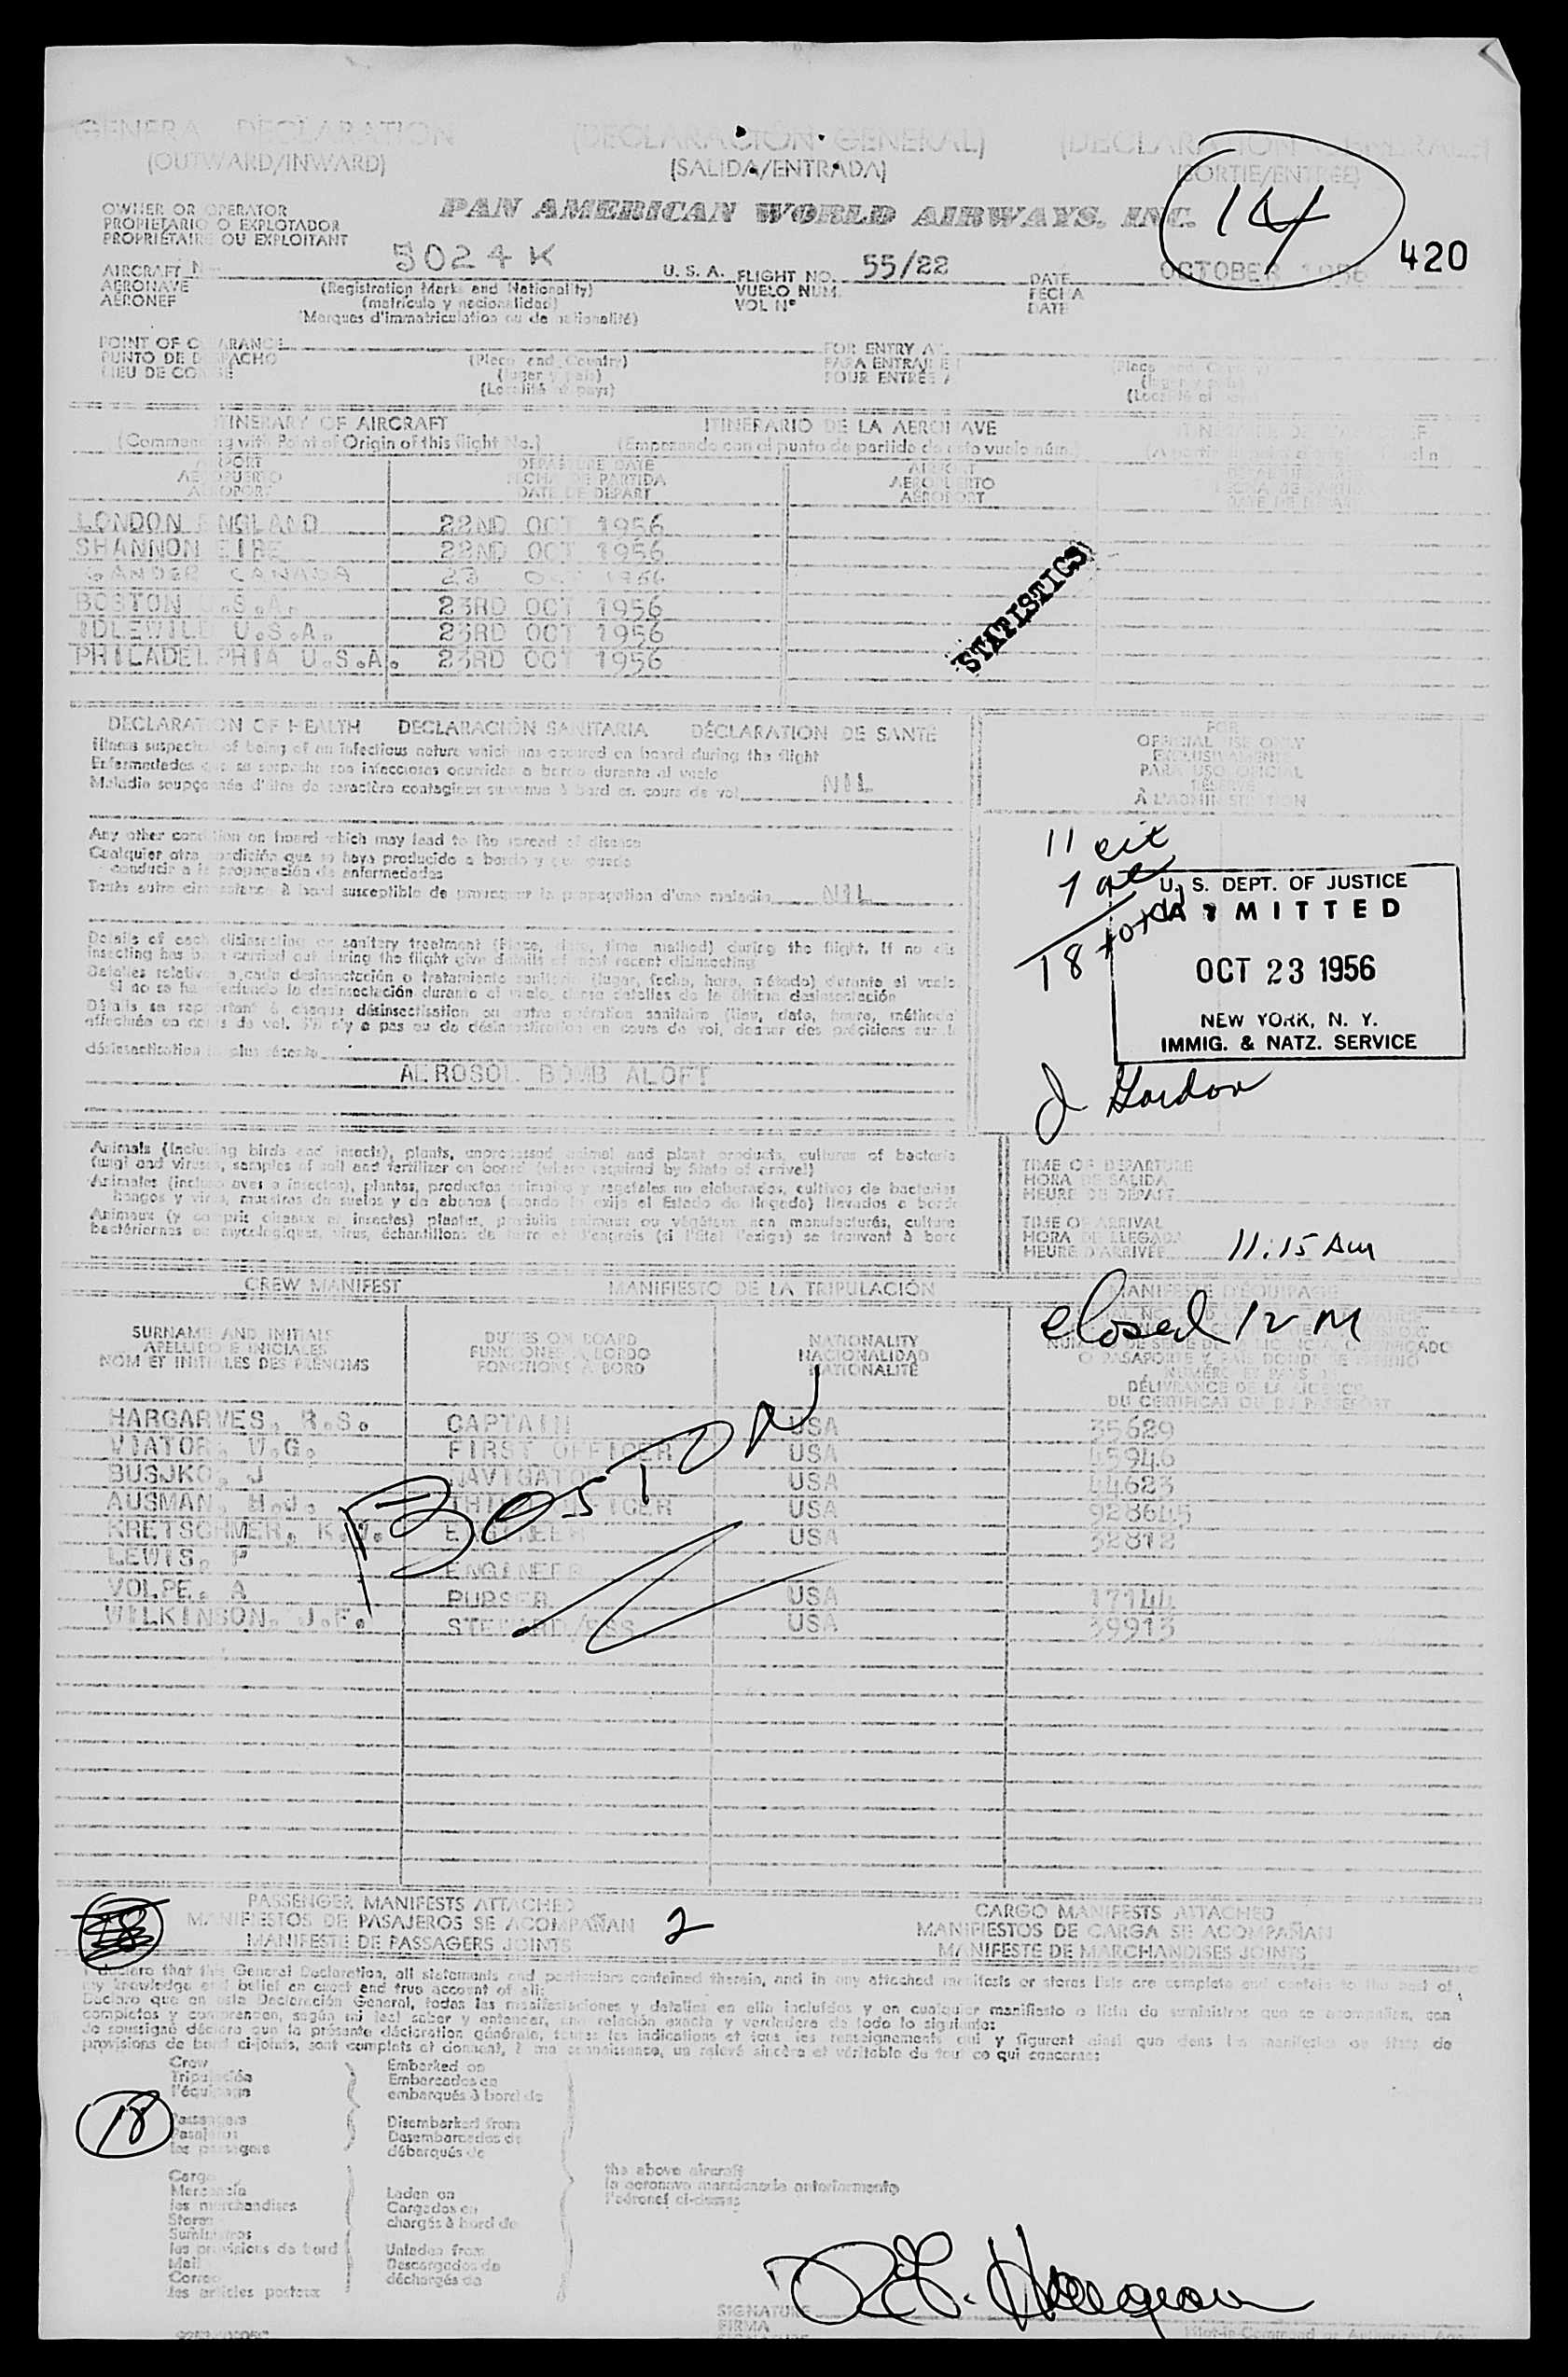 GENERAL DECLARATION (DECLARACIÓN GENERAL) (DECLARATION GENERALE)
(OUTWARD/INWARD) (SALIDA/ENTRADA) (SORTIE/ENTRÉE)
14
OWNER OR OPERATOR
PROPIETARIO O EXPLOTADOR
PROPRIÉTAIRE OU EXPLOITANT
PAN AMERICAN WORLD AIRWAYS, INC.
420
AIRCRAFT N 5024K U. S. A. FLIGHT NO. 55/22 DATE OCTOBER 1956
AERONAVE (Registration Marks and Nationality) VUELO NUM. FECHA
AÉRONEF (matrícula y nacionalidad) VOL Nº DATE
(Marques d'immatriculation ou de nationalité)
POINT OF CLEARANCE FOR ENTRY AT
PUNTO DE DESPACHO (Place and Country) PARA ENTRAR EN (Place and Country)
LIEU DE CONGÉ (lugar y país) POUR ENTRÉE A
(Localité et pays)
ITINERARY OF AIRCRAFT ITINERARIO DE LA AERONAVE
(Commencing with Point of Origin of this flight No.) (Empezando con el punto de partida de esto vuelo núm.)
AIRPORT DEPARTURE DATE AIRPORT
AEROPUERTO FECHA DE PARTIDA AEROPUERTO
AEROPORT DATE DE DÉPART AÉROPORT
LONDON ENGLAND 22ND OCT 1956
SHANNON EIRE 22ND OCT 1956
GANDER CANADA 23 OCT 1956
BOSTON U.S.A. 23RD OCT 1956
IDLEWILD U.S.A. 23RD OCT 1956
PHILADELPHIA U.S.A. 23RD OCT 1956
STATISTICS
DECLARATION OF HEALTH DECLARACIÓN SANITARIA DÉCLARATION DE SANTÉ
Illness suspected of being of an infectious nature which has occurred on board during the flight
Enfermedades que se sospeche son infecciosas ocurridas a bordo durante el vuelo
Maladie soupçonnée d'être de caractère contagieux survenue à bord en cours de vol NIL
Any other condition on board which may lead to the spread of disease
Cualquier otra condición que se haya producido a bordo y que pueda
conducir a la propagación de enfermedades
Toute autre circonstance à bord susceptible de provoquer la propagation d'une maladie NIL
Details of each disinsecting or sanitary treatment (Place, date, time method) during the flight. If no dis
insecting has been carried out during the flight give details of most recent disinsecting
Detalles relativos a cada desinsectación o tratamiento sanitario (lugar, fecha, hora, método) durante el vuelo
Si no se ha efectuado la desinsectación durante el vuelo, darse detalles de la última desinsectación
Détails se rapportant à chaque désinsectisation ou autre opération sanitaire (lieu, date, heure, méthode)
effectuée en cours de vol. S'il n'y a pas eu de désinsectisation en cours de vol, donner des précisions sur la
désinsectisation la plus récente
AEROSOL BOMB ALOFT
FOR
OFFICIAL USE ONLY
EXCLUSIVAMENTE
PARA USO OFICIAL
RÉSERVÉ
À L'ADMINISTRATION
11 cit
7 al
18 total
U. S. DEPT. OF JUSTICE
ADMITTED
OCT 23 1956
NEW YORK, N. Y.
IMMIG. & NATZ. SERVICE
J Gordon
Animals (including birds and insects), plants, unprocessed animal and plant products, cultures of bacteria
fungi and viruses, samples of soil and fertilizer on board (where required by State of arrival)
Animales (incluso aves e insectos), plantas, productos animales y vegetales no elaborados, cultivos de bacterias
hongos y virus, muestras de suelos y de abonos (cuando lo exija el Estado de llegada) llevados a bordo
Animaux (y compris oiseaux et insectes) plantes, produits animaux ou végétaux non manufacturés, culture
bactériennes ou mycologiques, virus, échantillons de terre et d'engrais (si l'État l'exige) se trouvant à bord
TIME OF DEPARTURE
HORA DE SALIDA
HEURE DE DÉPART
TIME OF ARRIVAL
HORA DE LLEGADA
HEURE D'ARRIVÉE 11:15 AM
CREW MANIFEST MANIFIESTO DE LA TRIPULACIÓN MANIFESTE D'ÉQUIPAGE
closed 12 M
SURNAME AND INITIALS DUTIES ON BOARD NATIONALITY
APELLIDO E INICIALES FUNCIONES A BORDO NACIONALIDAD
NOM ET INITIALES DES PRÉNOMS FONCTIONS A BORD NATIONALITÉ
NUMÉRO ET PAYS DE
DÉLIVRANCE DE LA LICENCE
DU CERTIFICAT OU DU PASSEPORT
HARGARVES, R.S. CAPTAIN USA 35629
VIATOR, U.G. FIRST OFFICER USA 45946
BUSJKO, J NAVIGATOR USA 44623
AUSMAN, H.J. THIRD OFFICER USA 928645
KRETSCHMER, K.W. ENGINEER USA 32812
LEWIS, P ENGINEER
VOLPE, A PURSER USA 17144
WILKINSON, J.F. STEWARD/ESS USA 39913
BOSTON
PASSENGER MANIFESTS ATTACHED CARGO MANIFESTS ATTACHED
MANIFIESTOS DE PASAJEROS SE ACOMPAÑAN 2 MANIFIESTOS DE CARGA SE ACOMPAÑAN
MANIFESTE DE PASSAGERS JOINTS MANIFESTE DE MARCHANDISES JOINTS
I declare that this General Declaration, all statements and particulars contained therein, and in any attached manifests or stores lists are complete and contain to the best of
my knowledge and belief an exact and true account of all:
Declaro que en esta Declaración General, todas las manifestaciones y detalles en ella incluídos y en cualquier manifiesto o lista de suministros que se acompañen, son
completos y comprenden, según mi leal saber y entender, una relación exacta y verdadera de todo lo siguiente:
Je soussigné déclare que la présente déclaration générale, toutes les indications et tous les renseignements qui y figurent ainsi que dans les manifestes ou états de
provisions de bord ci-joints, sont complets et donnent, à ma connaissance, un relevé sincère et véritable du tout ce qui concerne:
Crew Embarked on
Tripulación Embarcados en
l'équipage embarqués à bord de
18
Passengers Disembarked from
Pasajeros Desembarcados de
les passagers débarqués de
the above aircraft
la aeronave mencionada anteriormente
l'aéronef ci-dessus
Cargo
Mercancía Laden on
les marchandises Cargados en
Stores chargés à bord de
Suministros
les provisions de bord Unladen from
Mail Descargados de
Correo déchargés de
les articles postaux
SIGNATURE
FIRMA
Pilot-in-Command or Authorized Agent